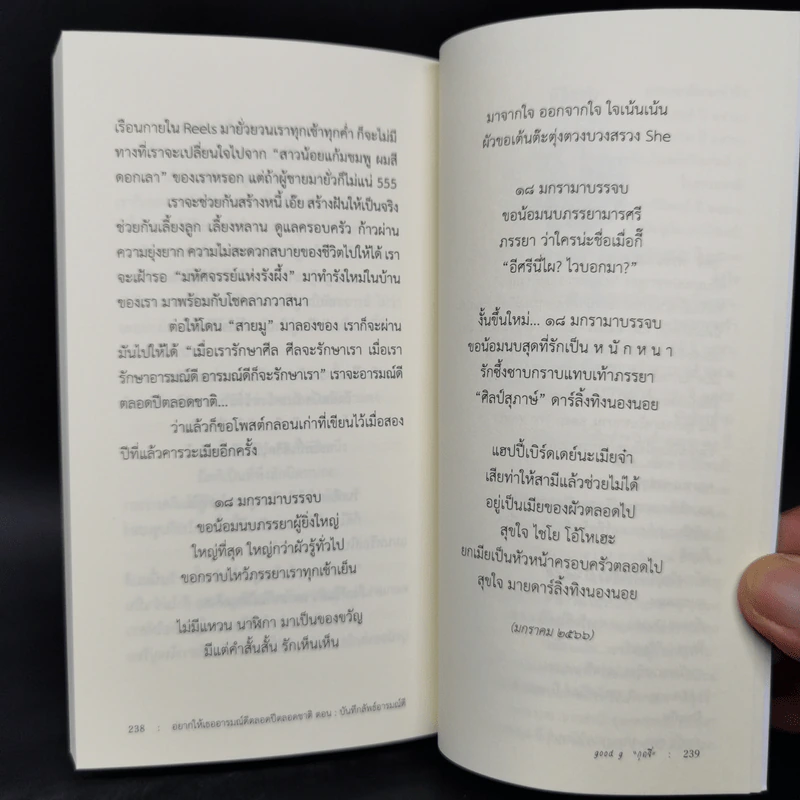 เรือนกายใน Reels มายั่วยวนเราทุกเช้าทุกค่ำ ก็จะไม่มี
ทางที่เราจะเปลี่ยนใจไปจาก “สาวน้อยแก้มชมพู ผมสี
ดอกเลา” ของเราหรอก แต่ถ้าผู้ชายมายั่วก็ไม่แน่ 555
เราจะช่วยกันสร้างหนี้ เอ๊ย สร้างฝันให้เป็นจริง
ช่วยกันเลี้ยงลูก เลี้ยงหลาน ดูแลครอบครัว ก้าวผ่าน
ความยุ่งยาก ความไม่สะดวกสบายของชีวิตไปให้ได้ เรา
จะเฝ้ารอ “มหัศจรรย์แห่งรังผึ้ง” มาทำรังใหม่ในบ้าน
ของเรา มาพร้อมกับโชคลาภวาสนา
ต่อให้โดน “สายมู” มาลองของ เราก็จะผ่าน
มันไปให้ได้ “เมื่อเรารักษาศีล ศีลจะรักษาเรา เมื่อเรา
รักษาอารมณ์ดี อารมณ์ดีก็จะรักษาเรา” เราจะอารมณ์ดี
ตลอดปีตลอดชาติ...
ว่าแล้วก็ขอโพสต์กลอนเก่าที่เขียนไว้เมื่อสอง
ปีที่แล้วคารวะเมียอีกครั้ง
๑๘ มกรามาบรรจบ
ขอน้อมนบภรรยาผู้ยิ่งใหญ่
ใหญ่ที่สุด ใหญ่กว่าผัวรู้ทั่วไป
ขอกราบไหว้ภรรยาเราทุกเช้าเย็น
ไม่มีแหวน นาฬิกา มาเป็นของขวัญ
มีแต่คำสั้นสั้น รักเห็นเห็น
238 : อยากให้เธออารมณ์ดีตลอดปีตลอดชาติ ตอน : บันทึกลัทธ์อารมณ์ดี
มาจากใจ ออกจากใจ ใจเน้นเน้น
ผัวขอเต้นต๊ะตุ่งตวงบวงสรวง She
๑๘ มกรามาบรรจบ
ขอน้อมนบภรรยามารศรี
ภรรยา ว่าใครน่ะชื่อเมื่อกี๊
“อีศรีนี่ไผ? ไวบอกมา?”
งั้นขึ้นใหม่... ๑๘ มกรามาบรรจบ
ขอน้อมนบสุดที่รักเป็น ห นั ก ห น า
รักซึ้งซาบกราบแทบเท้าภรรยา
“ศิลป์สุภาษ์” ดาร์ลิ้งทิงนองนอย
แฮปปี้เบิร์ดเดย์นะเมียจ๋า
เสียท่าให้สามีแล้วช่วยไม่ได้
อยู่เป็นเมียของผัวตลอดไป
สุขใจ ไชโย โอ้โหเฮะ
ยกเมียเป็นหัวหน้าครอบครัวตลอดไป
สุขใจ มายดาร์ลิ้งทิงนองนอย
(มกราคม ๒๕๖๖)
good g “กุดจี่” : 239